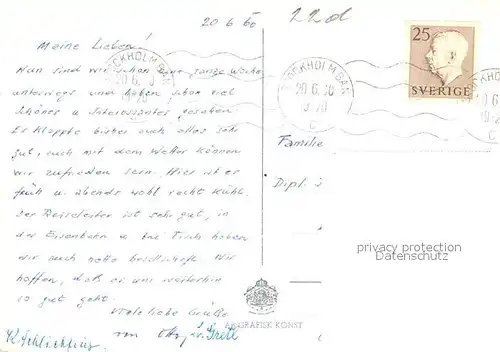 20 6 60
22d
Meine Lieben!
Nun sind wir schon eine ganze Woche
unterwegs und haben schon viel
Schönes u Interessantes gesehen.
Es klappte bisher auch alles sehr
gut, auch mit dem Wetter können
wir zufrieden sein. Hier ist er
früh u. abends wohl recht kühl.
Der Reiseleiter ist sehr gut, in
der Eisenbahn u bei Tisch haben
wir auch nette Gesellschaft. Wir
hoffen, daß er uns weiterhin
so gut geht.
Viele liebe Grüße
von Otto u. Gretl
K. Schlichting
25
SVERIGE
STOCKHOLM BAN
20.6.
19-20
STOCKHOLM BAN
20.6.
C
Familie
Dipl.
privacy protection
Datenschutz
AB GRAFISK KONST